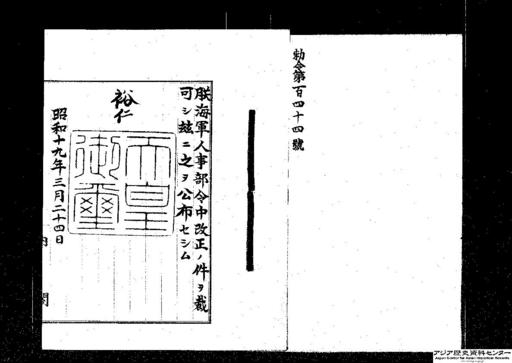 勅令第百四十四號
朕海軍人事部令中改正ノ件ヲ裁
可シ玆ニ之ヲ公布セシム
裕仁
天皇
御璽
昭和十九年三月二十四日
内閣
アジア歴史資料センター
Japan Center for Asian Historical Records